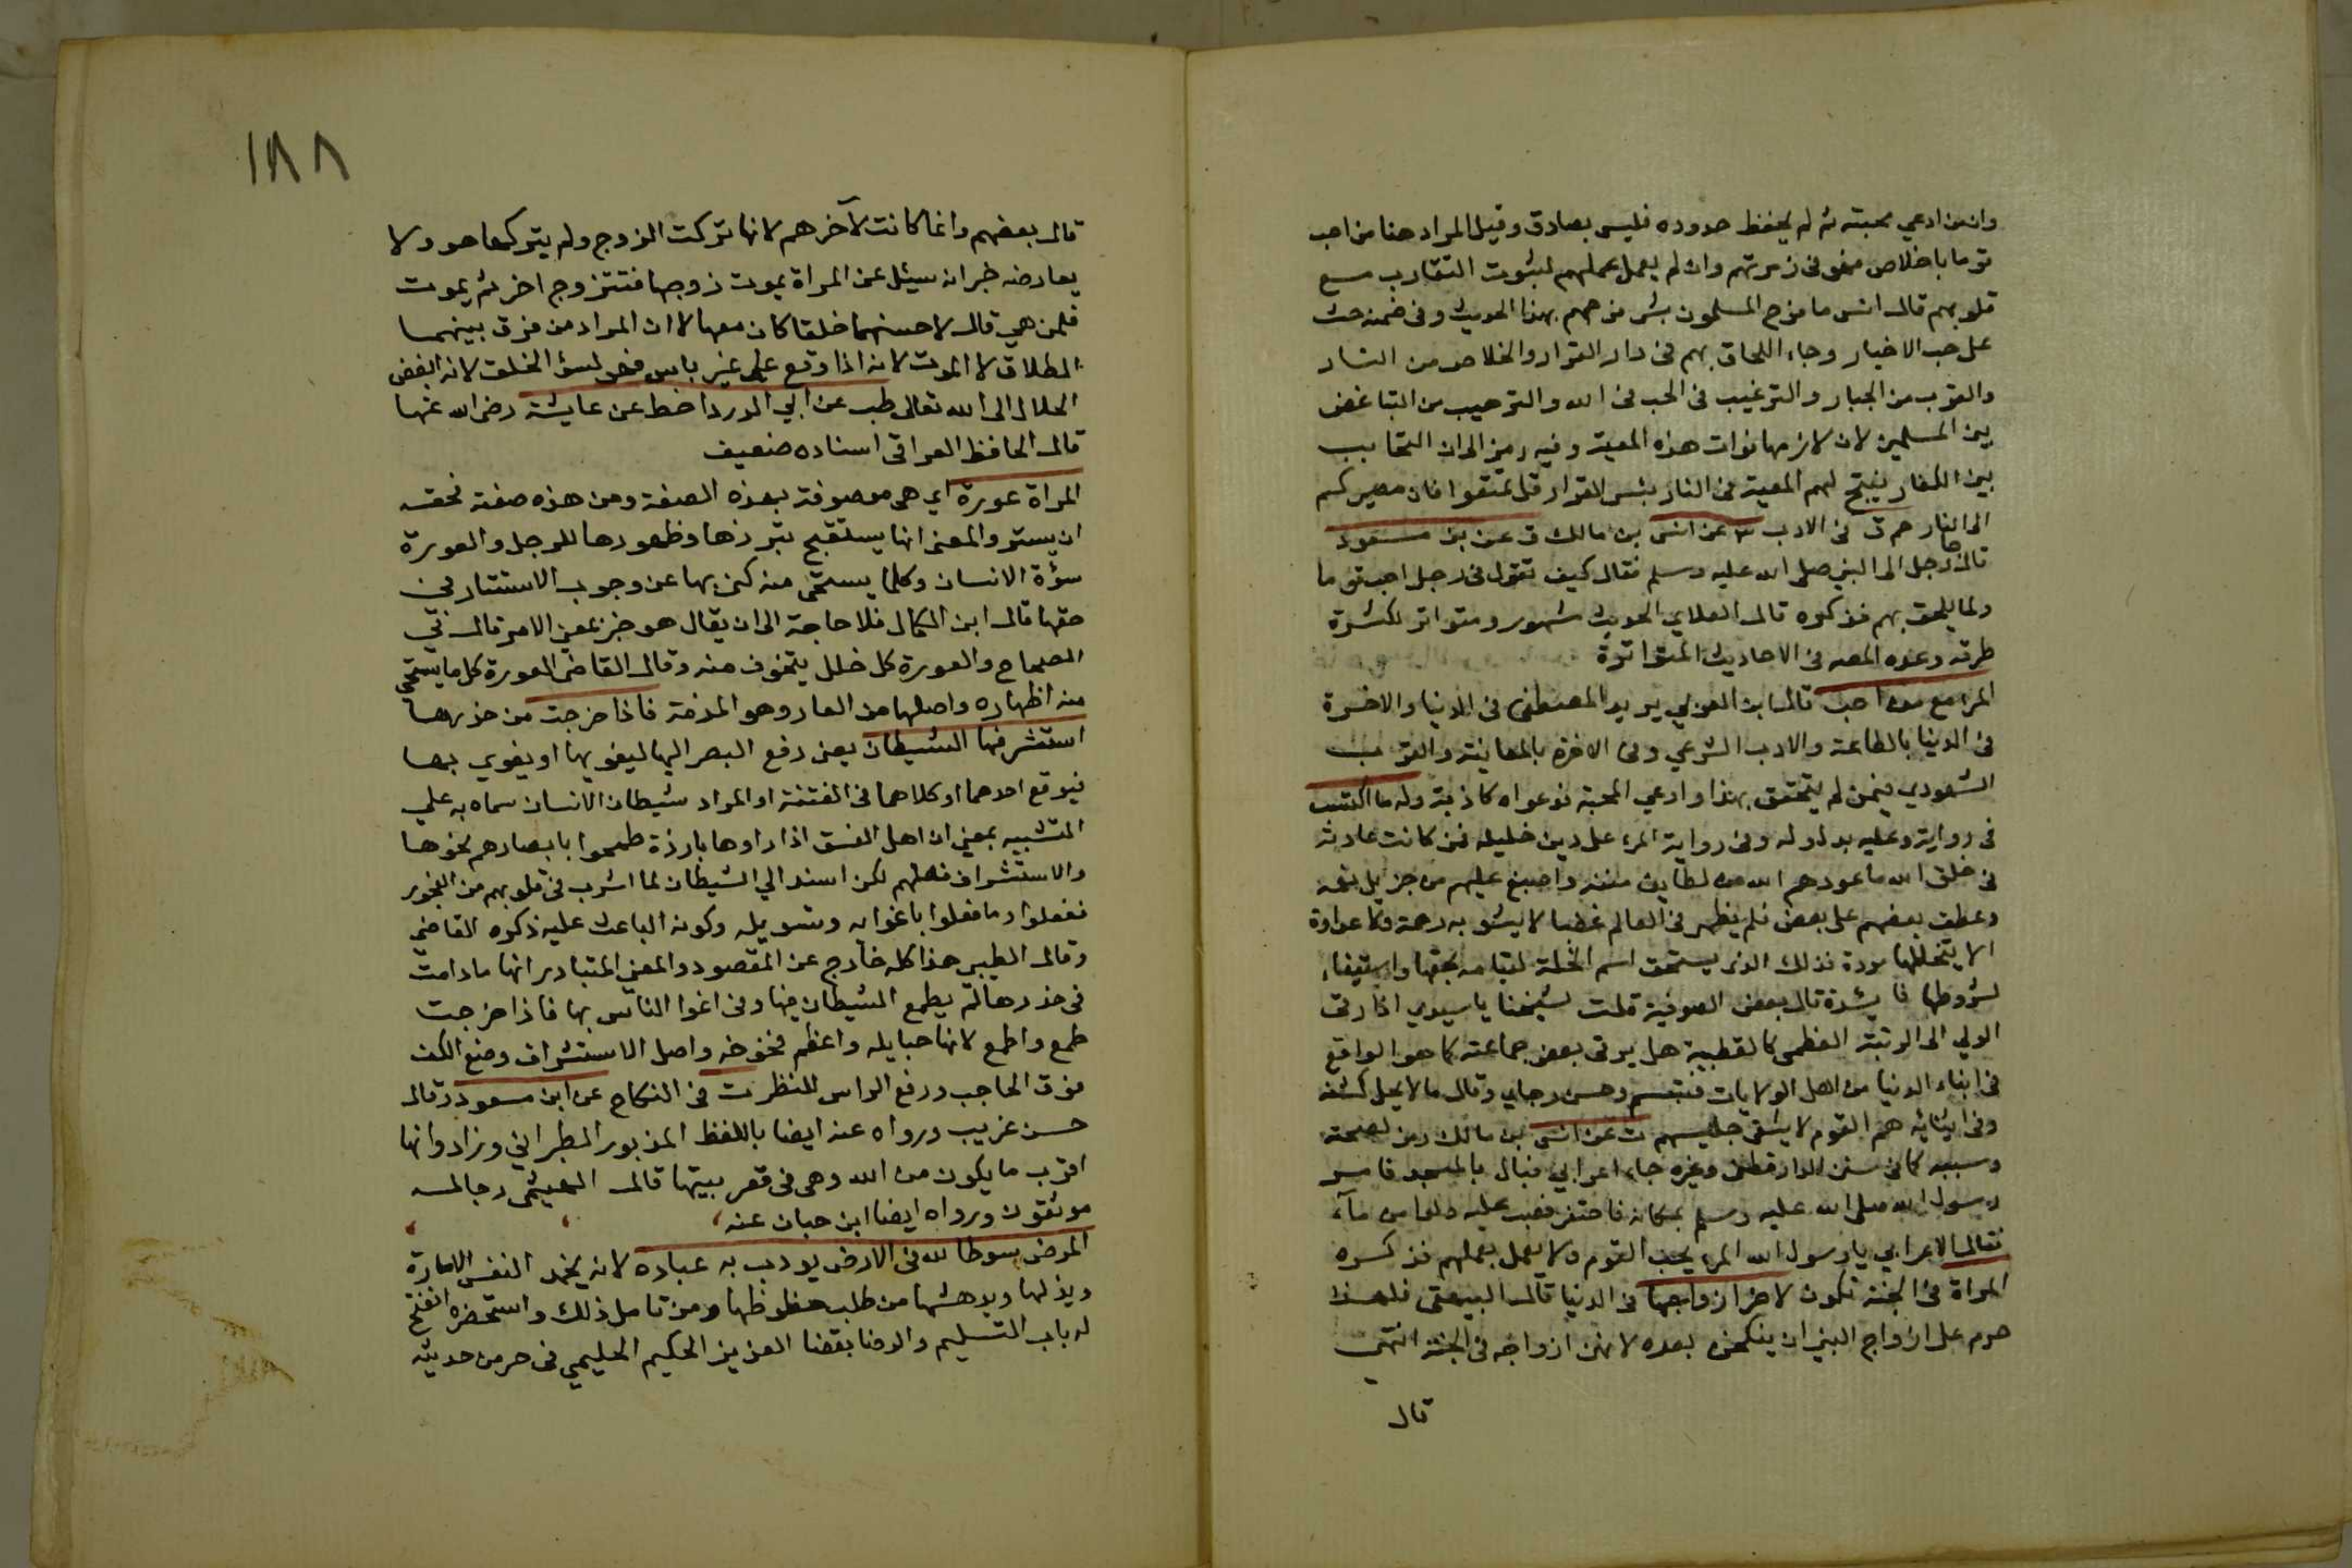 وان من ادعي محبته ثم لم يحفظ حدوده فليس بصادق وقيل المراد هنا من احب
قوما باخلاص فهو في زمرتهم وان لم يعمل عملهم لثبوت التقارب مع
قلوبهم قال انس ما فرح المسلمون بشئ فرحهم بهذا الحديث وفي ضمنه حث
على حب الاخيار رجاء اللحاق بهم في دار القرار والخلاص من النار
والقرب من الجبار والترغيب في الحب في الله والترهيب من التباغض
بين المسلمين لان لازمها فوات هذه المعية وفيه رمز الى ان التحابب
بين الكفار ينتج لهم المعية في النار بئس القرار قل تمتعوا فان مصيركم
الى النار حم ق في الادب عن انس بن مالك ق عن بن مسعود
قال جا رجل الى النبي صلى الله عليه وسلم فقال كيف تقول في رجل احب قوما
ولما يلحق بهم فذكره قال العلاي الحديث مشهور ومتواتر لكثرة
طرقه وعده المصه في الاحاديث المتواترة
المرا مع من احب قال ابن العربي يريد المصطفى في الدنيا والاخرة
في الدنيا بالطاعة والادب الشرعي وفي الاخرة بالمعاينة والقرب
الشهودي فمن لم يتحقق بهذا وادعي المحبة فدعواه كاذبة وله ما اكتسب
في رواية وعليه بدل وله وفي رواية المرء على دين خليله فمن كانت عادته
في خلق الله ما عودهم الله من لطايف مننه واصبغ عليهم من جزيل نعمه
وعطف بعضهم على بعض فلم يظهر في العالم غضبا لا يشوبه رحمة ولا عداوة
الا يتخللها مودة فذلك الذي يستحق اسم الخلة لقيامه بحقها واستيفاء
شروطها فايدة قال بعض الصوفية قلت لشيخنا يا سيدي اذا رقى
الولي الى الرتبة العظمى كالقطبية هل يرقى بعض جماعته كما هو الواقع
في ابناء الدنيا من اهل الولايات فتبسم وحسن رجاي وقال ما لا يحل كشفه
وفي اثنائه هم القوم لا يشقى جليسهم ت عن انس بن مالك رمز لصحته
وسببه كما في سنن الدارقطني وغيره جاء اعرابي فبال بالمسجد فامر
رسول الله صلى الله عليه وسلم بمكانه فاحتفر فصب عليه دلوا من ماء
فقال الاعرابي يا رسول الله المرء يحب القوم ولا يعمل بعملهم فذكره
المراة في الجنة تكون لاخر ازواجها في الدنيا قال البيهقي فلهذا
حرم على ازواج النبي ان ينكحن بعده لانهن ازواجه في الجنة انتهى
قال
١٨٨
قال بعضهم وانما كانت لآخرهم لانها تركت الزوج ولم يتركها هو ولا
يعارضه خبر انه سيئل عن المراة يموت زوجها فتتزوج اخر ثم يموت
فلمن هي قال لاحسنهما خلقا كان معها لان المراد من فرق بينهما
الطلاق لا الموت لانه اذا وقع على غير باس فهو لسؤ الخلق لانه ابغض
الحلال الى الله تعالى طب عن ابي الدردا خط عن عايشة رضي الله عنها
قال الحافظ العراقي اسناده ضعيف
المراة عورة اي هي موصوفة بهذه الصفة ومن هذه صفته فحقه
ان يستر والمعنى انها يستقبح تبرزها وظهورها للرجل والعورة
سؤة الانسان وكلما يستحى منه كنى بها عن وجوب الاستتار في
حقها قال ابن الكمال فلا حاجة الى ان يقال هو خبر بمعنى الامر قال في
الصحاح والعورة كل خلل يتخوف منه وقال القاضي العورة كل ما يستحي
منه اظهاره واصلها من العار وهو المذمة فاذا خرجت من خدرها
استشرفها الشيطان يعني رفع البصر اليها ليغويها او يغوي بها
فيوقع احدهما او كلاهما في الفتنة او المراد شيطان الانسان سماه به على
التشبيه بمعنى ان اهل الفسق اذا راوها بارزة طمحوا بابصارهم نحوها
والاستشراف فعلهم لكن اسند الى الشيطان لما اشرب في قلوبهم من الفجور
ففعلوا ما فعلوا باغوايه وتسويله وكونه الباعث عليه ذكره القاضي
وقال الطيبي هذا كله خارج عن المقصود والمعنى المتبادر انها ما دامت
في خدرها لم يطمع الشيطان فيها وفي اغوا الناس بها فاذا خرجت
طمع واطمع لانها حبايله واعظم فخوخه واصل الاستشراف وضع الكف
فوق الحاجب ورفع الراس للنظر ت في النكاح عن ابن مسعود وقال
حسن غريب ورواه عنه ايضا باللفظ المزبور الطبراني وزاد وانها
اقرب ما يكون من الله وهي في قعر بيتها قال الهيثمي رجاله
موثقون ورواه ايضا ابن حبان عنه
المرض سوط الله في الارض يودب به عباده لانه يخمد النفس الامارة
ويذلها ويدهشها من طلب حظوظها ومن تامل ذلك واستحضره انفتح
له باب التسليم والرضا بقضا العزيز الحكيم الحليمي في حرمن حديثه